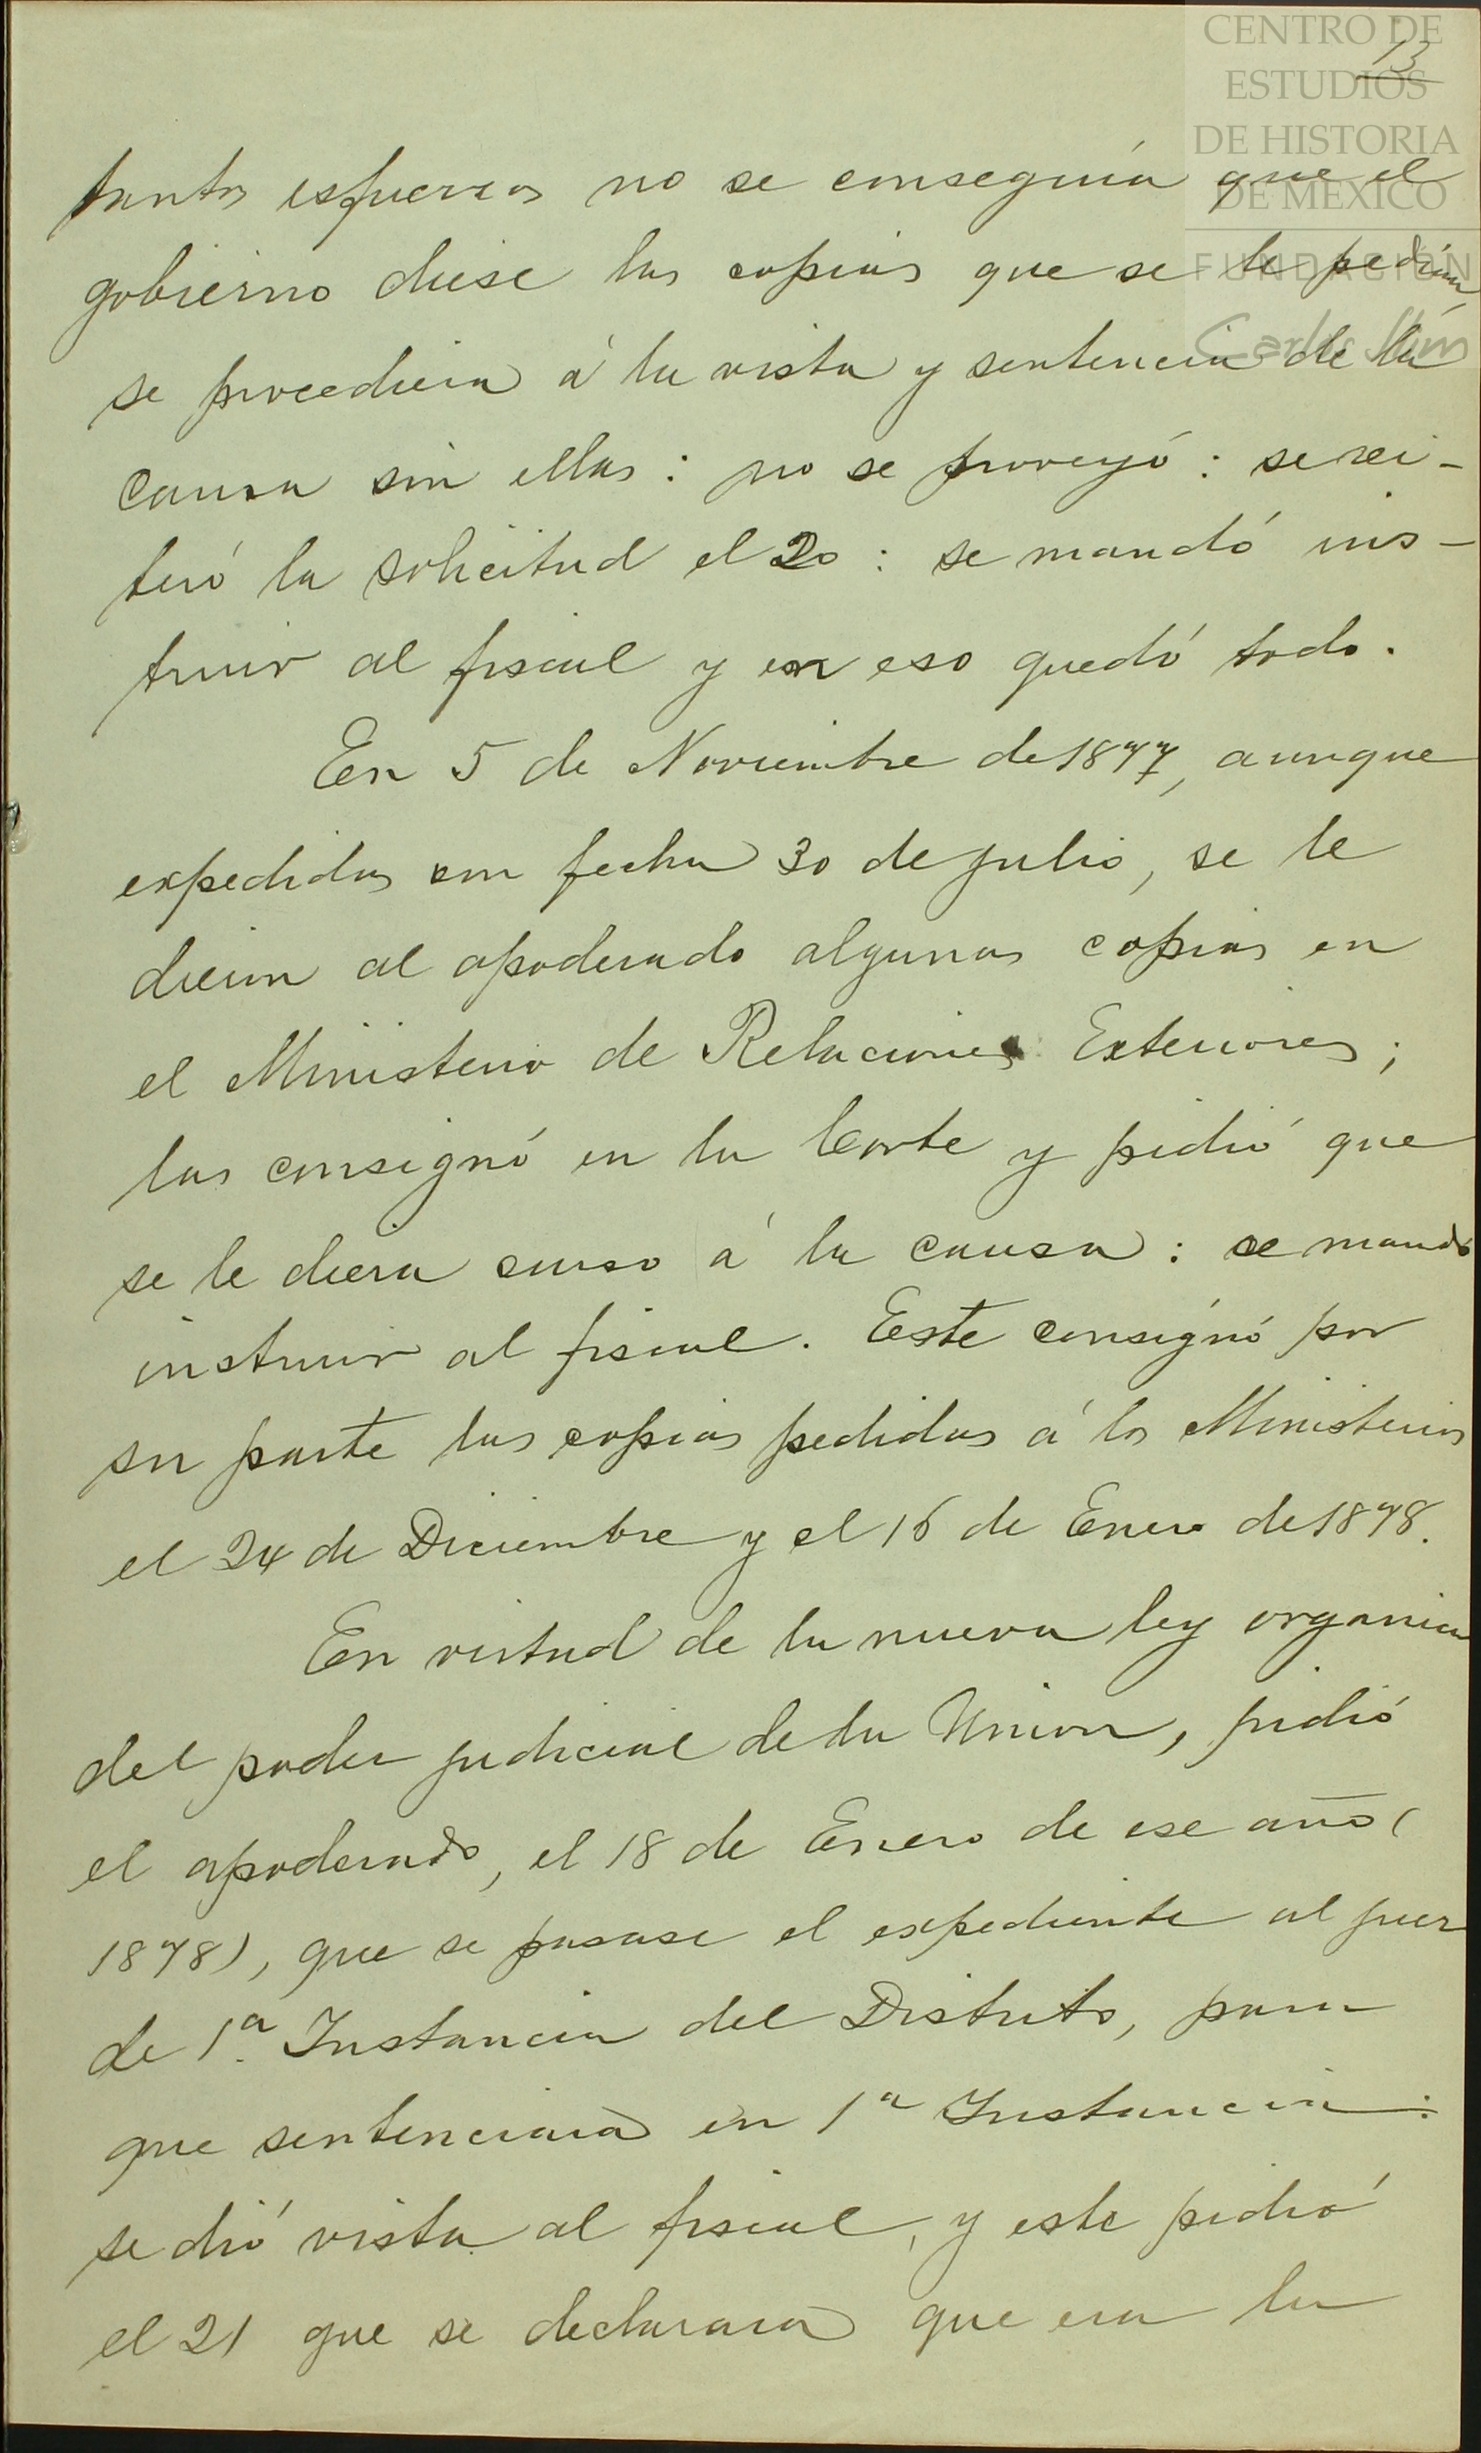 CENTRO DE
ESTUDIOS
DE HISTORIA
DE MEXICO
FUNDACIÓN
Carlos Slim
13
tantos esfuerzos no se conseguía que el
gobierno diese las copias que se le pedían,
se procediera á la vista y sentencia de la
causa sin ellas: no se proveyó: se rei-
teró la solicitud el 20: se mandó ins-
truir al fiscal y en eso quedó todo.
En 5 de Noviembre de 1877, aunque
expedidas con fecha 30 de julio, se le
dieron al apoderado algunas copias en
el Ministerio de Relaciones Exteriores;
las consignó en la Corte y pidió que
se le diera curso á la causa: se mandó
instruir al fiscal. Este consignó por
su parte las copias pedidas á los Ministerios
el 24 de Diciembre y el 16 de Enero de 1878.
En virtud de la nueva ley organica
del poder judicial de la Union, pidió
el apoderado, el 18 de Enero de ese año (
1878), que se pasase el expediente al juez
de 1ª Instancia del Distrito, para
que sentenciara en 1ª Instancia:
se dió vista al fiscal, y este pidió
el 21 que se declarara que era la